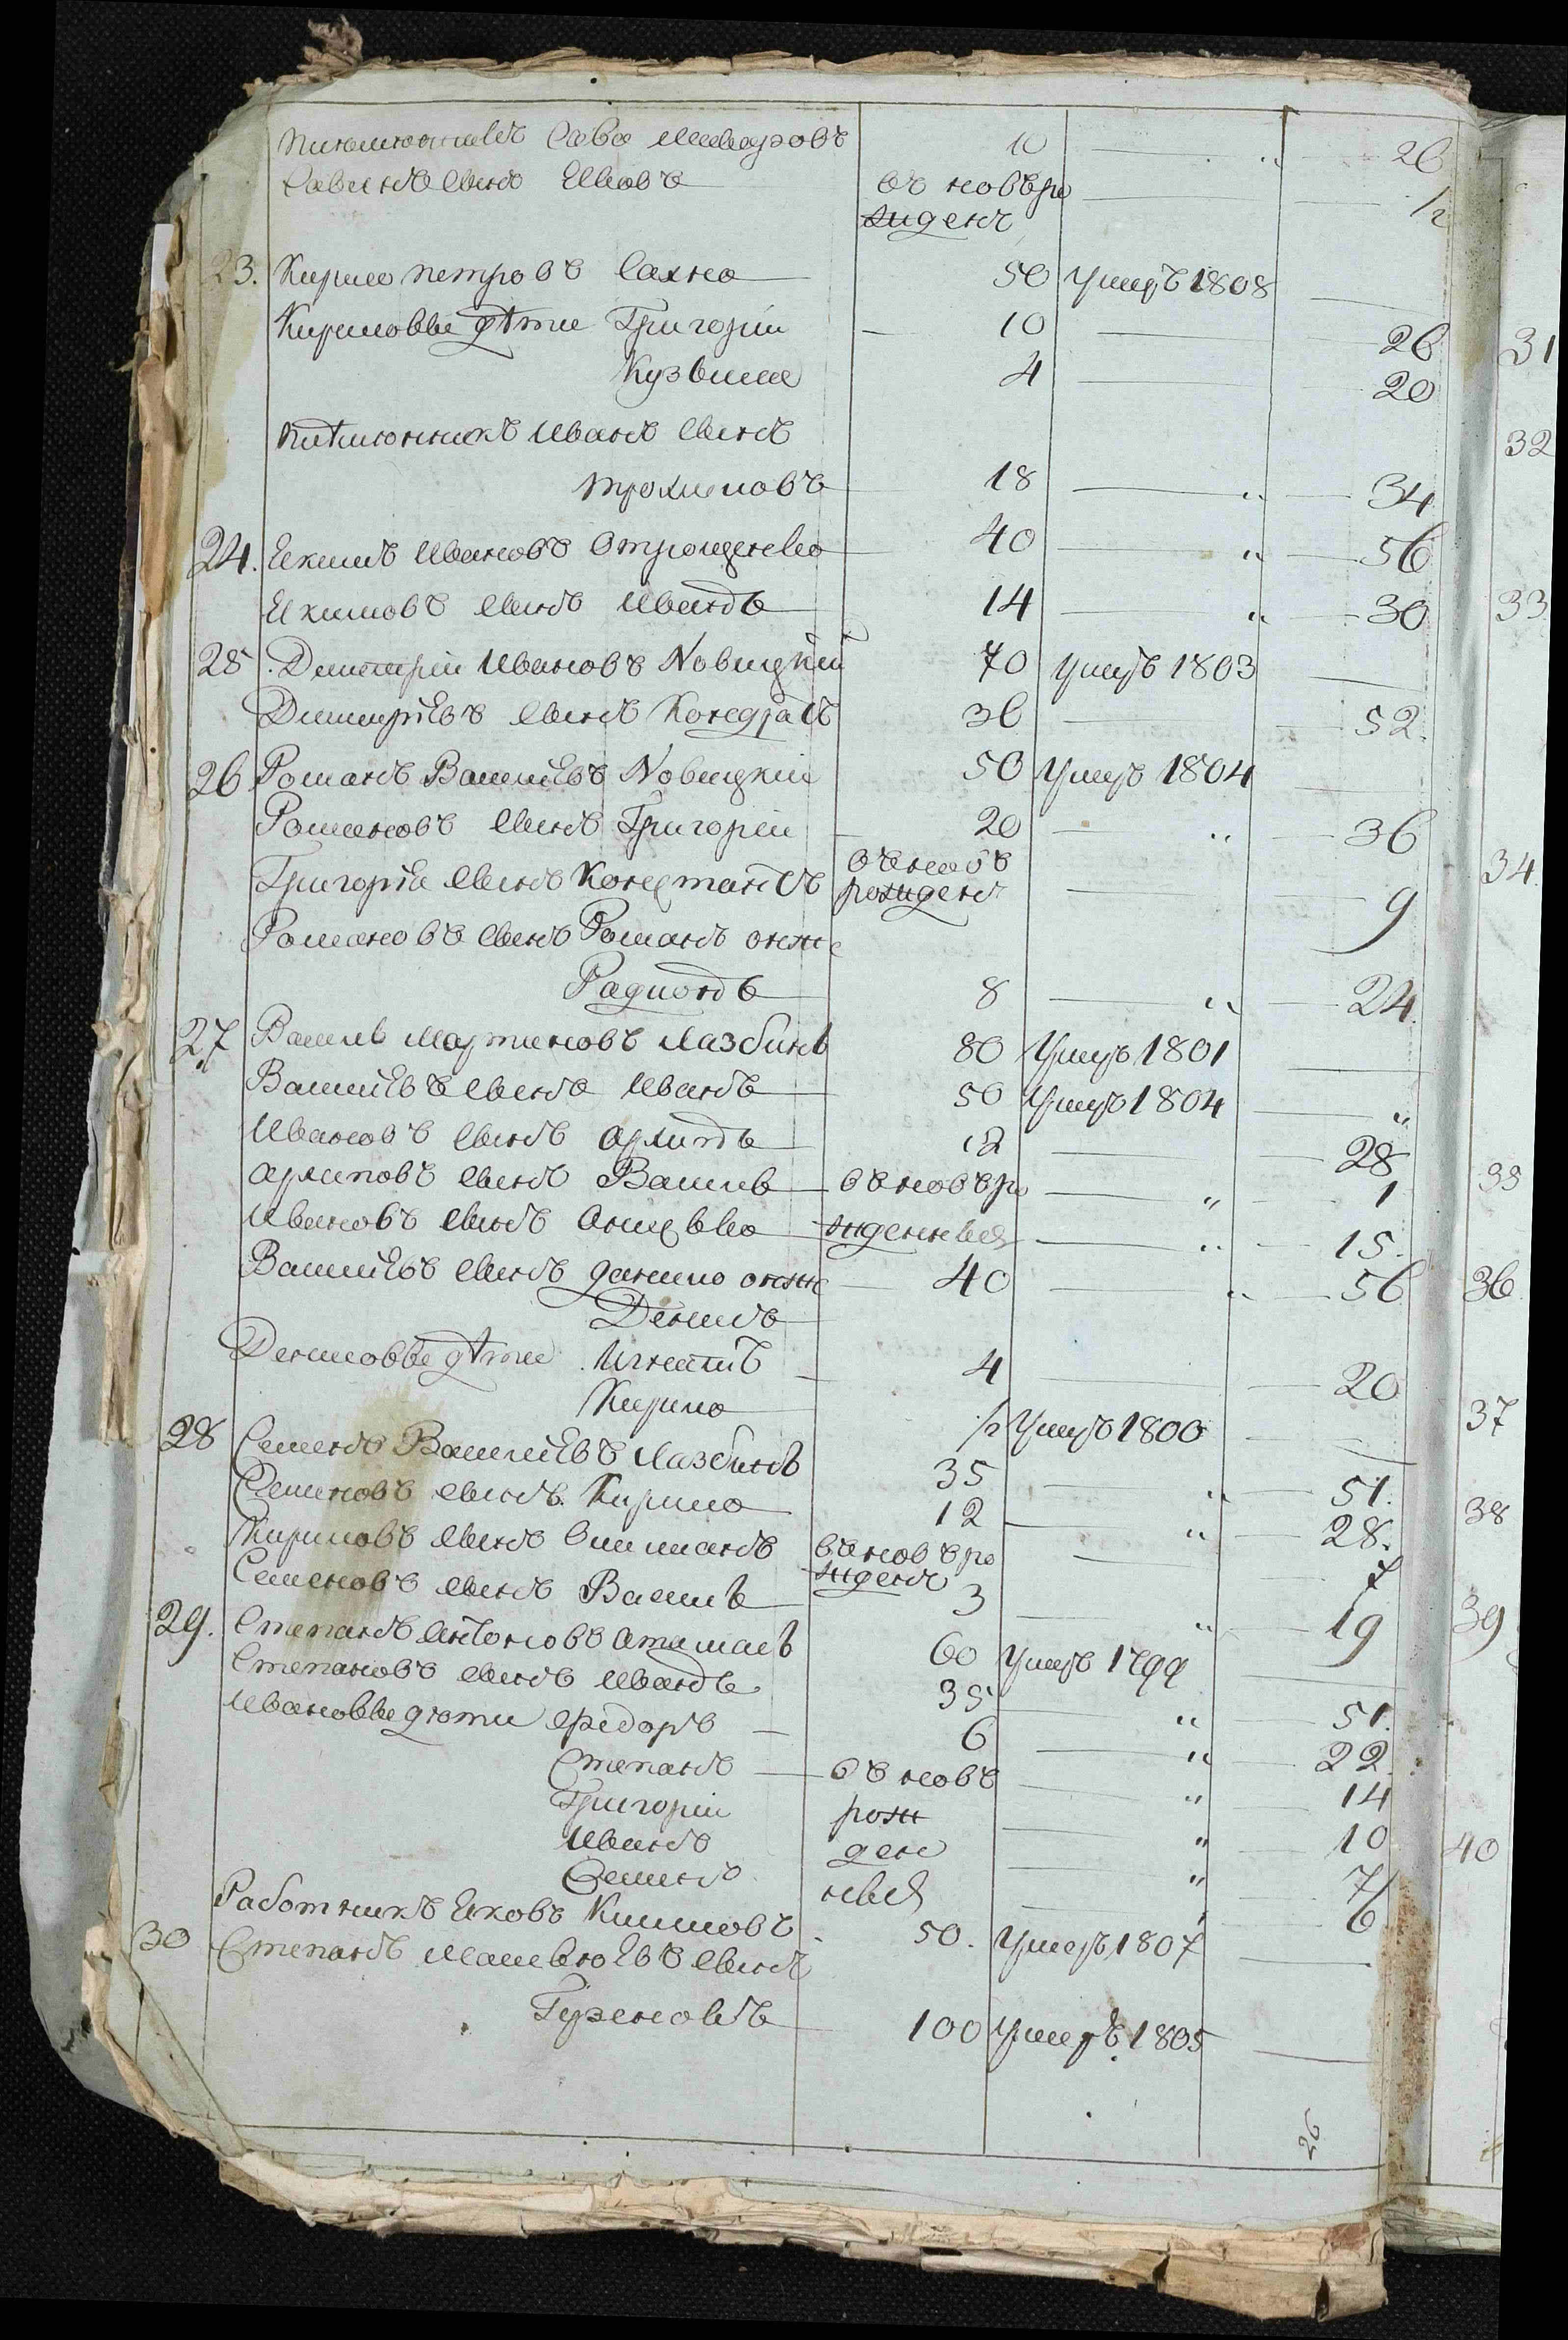 Савва 10 " 26
Савинъ сынъ въ новѣ ро 1/2
жденъ
23. Кирило Петровъ Сахно 50 умеръ 1808
Кириловы дѣти Григоріи 10 26
Кузьма 4 20
Племянникъ Иванъ сынъ
Трохимовъ 18 " 34
24. Екимъ Ивановъ 40 " 56
Екимовъ сынъ Иванъ 14 " 30
25. Дмитріи Ивановъ Новицкій 70 умеръ 1803
Дмитріевъ сынъ Кондратъ 36 52.
26 Романъ Василіевъ Новицкій 50 умеръ 1804
Романовъ сынъ Григоріи 20 " 36
въ новѣ
Григоріа сынъ рожденъ 9
Романовъ сынъ Романъ онже
Радионъ 8 " 24.
27 Василь Мартиновъ Лазбинь 80 умеръ 1801
Василіевъ сынъ Иванъ 50 умеръ 1804 "
Ивановъ сынъ Архипъ 12 28
Архиповъ сынъ Василь въ новѣ ро " 1
Ивановъ сынъ жденные " 15.
Василіевъ сынъ Данило онже 40 " 56
Денисъ
Денисовы дѣти Игнатъ 4 20
Кирило 1/2 умеръ 1800
28 Семенъ Василіевъ Лазбинъ 35 " 51.
Семеновъ сынъ Кирило 12 " 28.
Кириловъ сынъ въ новѣ ро 7
жденъ
Семеновъ сынъ Василь 3 " 19
29. Степанъ Антоновъ 60 умеръ 1799
Степановъ сынъ Иванъ 35 " 51.
Ивановы дѣти Федоръ 6 " 22.
Степанъ въ новѣ " 14
Григоріи рож " 10
Иванъ ден " 7
Семенъ ные 6
Работникъ Яковъ Климовъ 50. умеръ 1807
30 Степанъ сынъ
100 умеръ 1805
26
31
32
33
34.
35
36
37
38
39
40